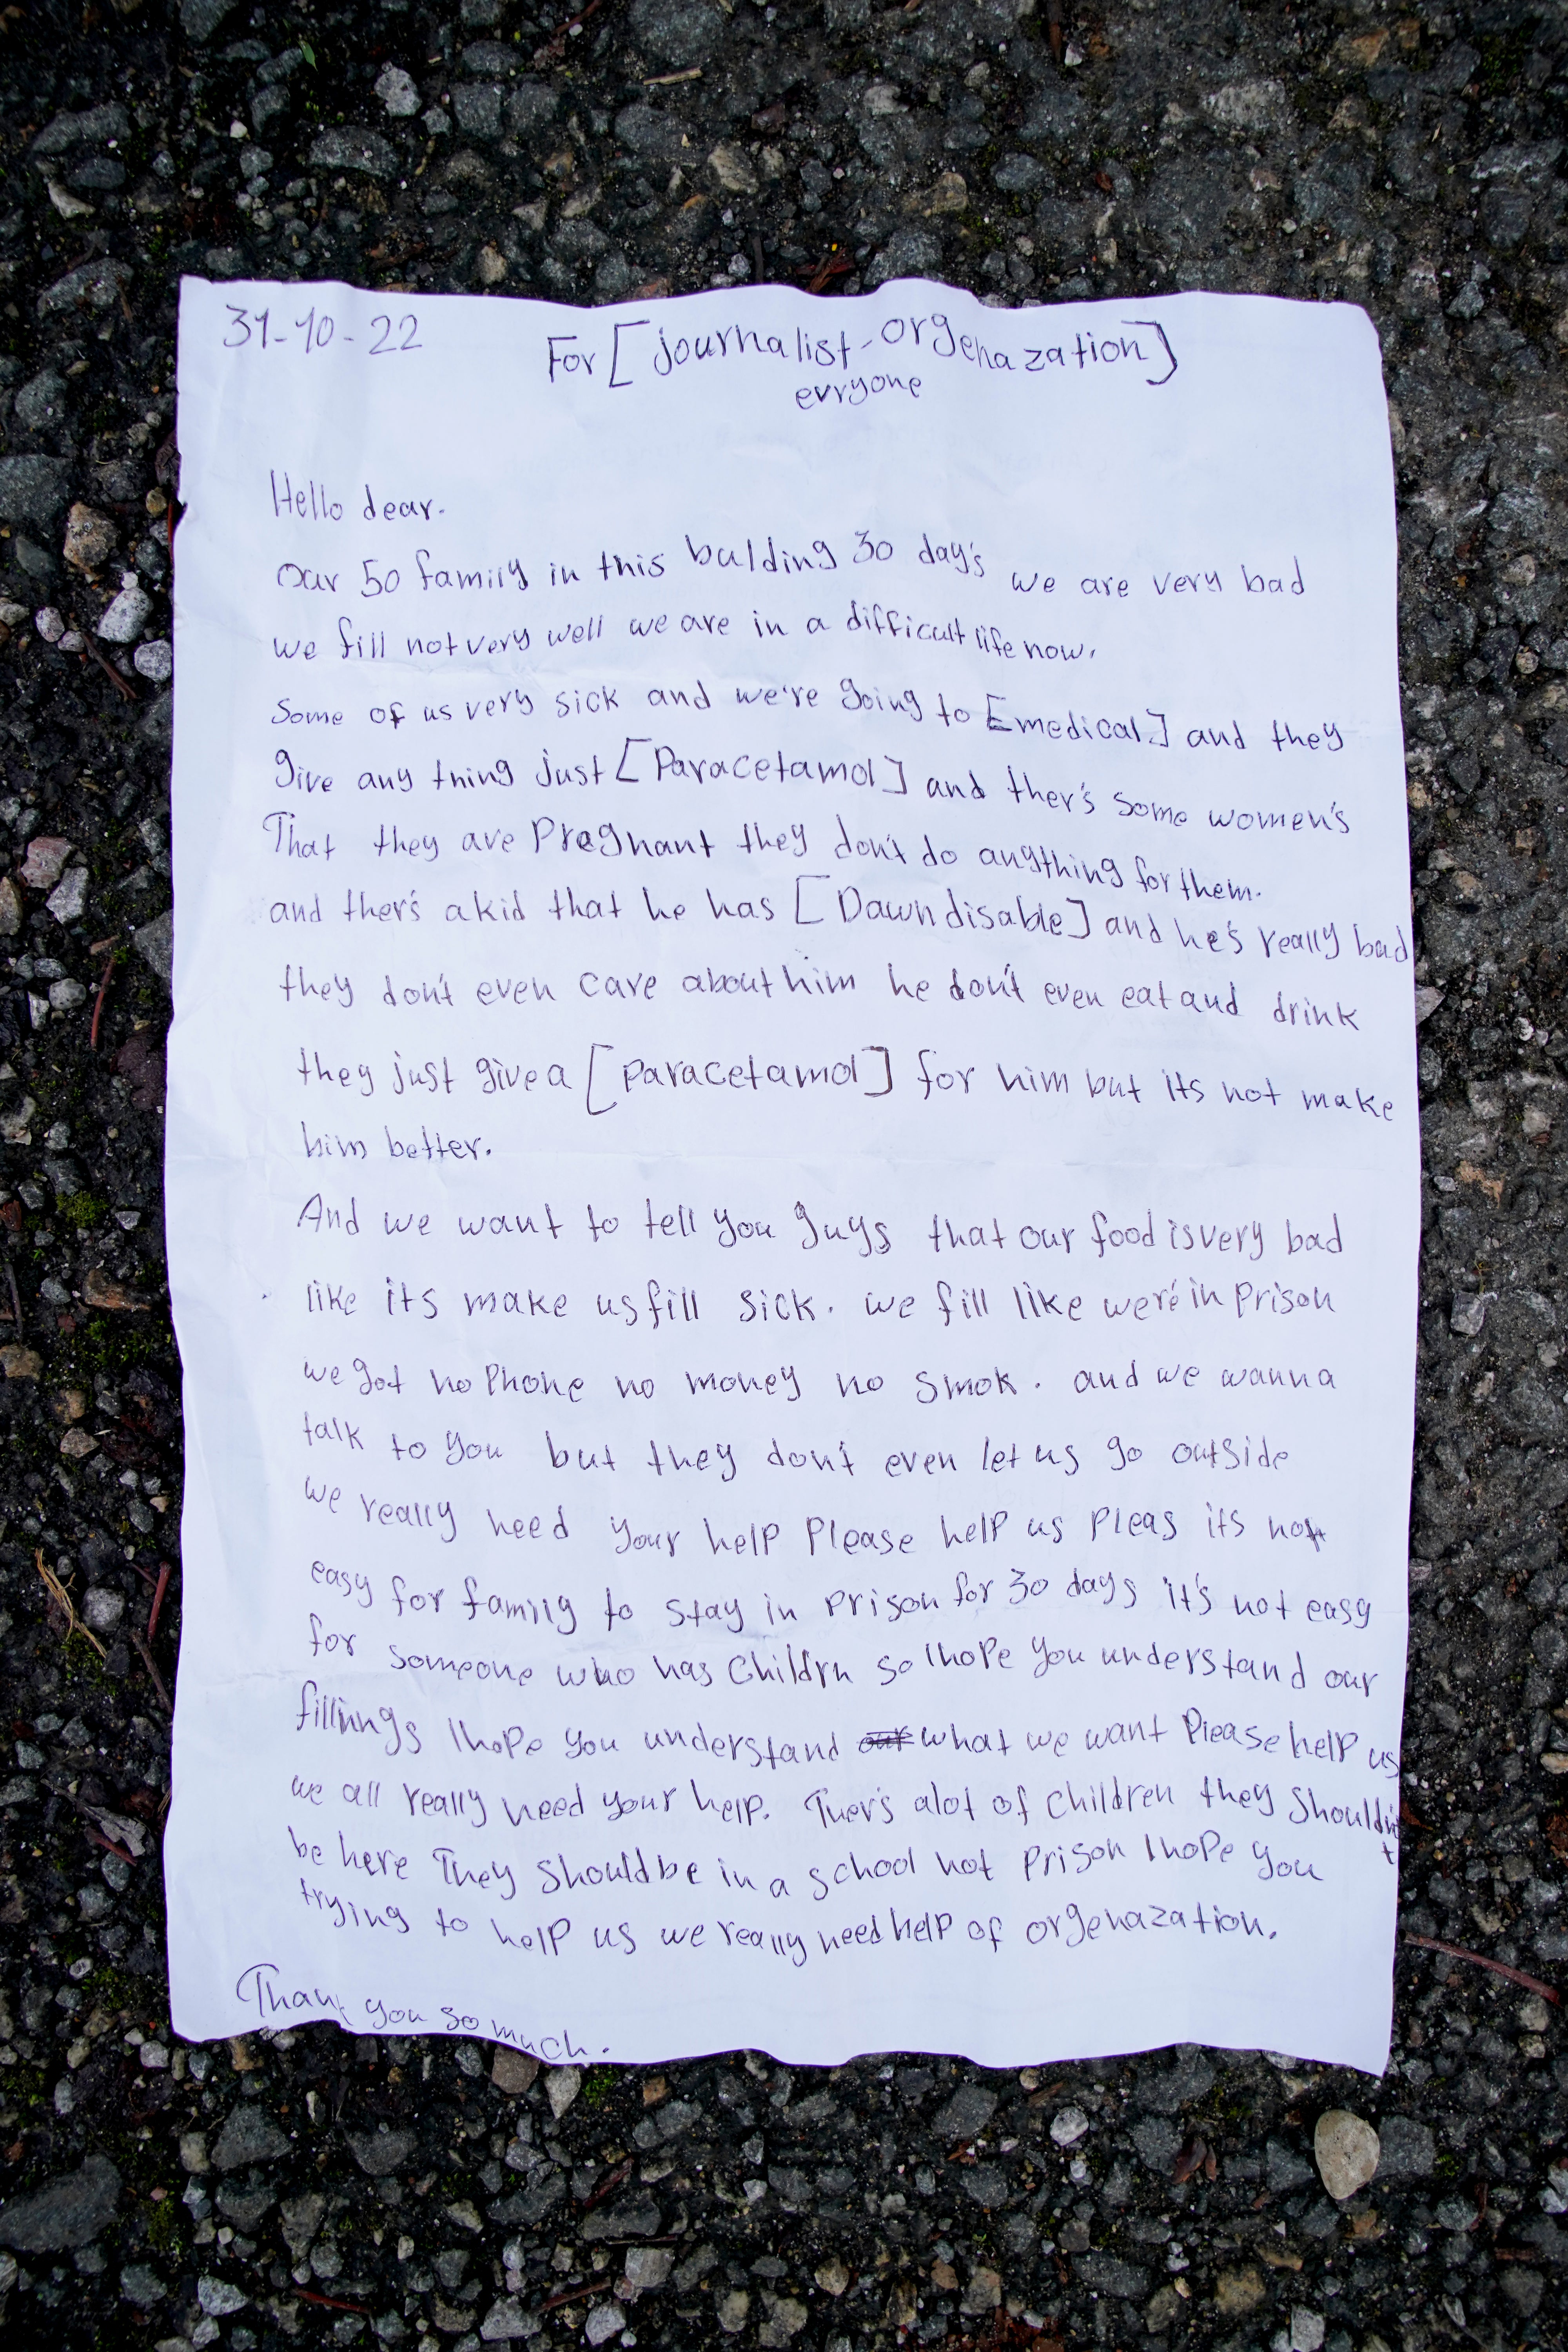 31-10-22
For [journalist-orgenazation]
evryone
Hello dear.
our 50 family in this bulding 30 day's we are very bad
we fill not very well we are in a difficult life now.
Some of us very sick and we're going to [medical] and they
give any thing just [Paracetamol] and ther's some women's
That they are Pregnant they don't do anything for them.
and ther's a kid that he has [Dawn disable] and he's really bad
they don't even care about him he don't even eat and drink
they just give a [paracetamol] for him but its not make
him better.
And we want to tell you guys that our food is very bad
like its make us fill sick. we fill like we're in prison
we got no Phone no money no smok. and we wanna
talk to you but they don't even let us go outside
we really need your help Please help us pleas its not
easy for family to stay in prison for 30 days it's not easy
for someone who has Childrn so I hope you understand our
fillinngs I hope you understand our what we want Please help us
we all really need your help. Ther's alot of children they shouldn't
be here They should be in a school not prison I hope you
trying to help us we really need help of orgenazation.
Thank you so much.